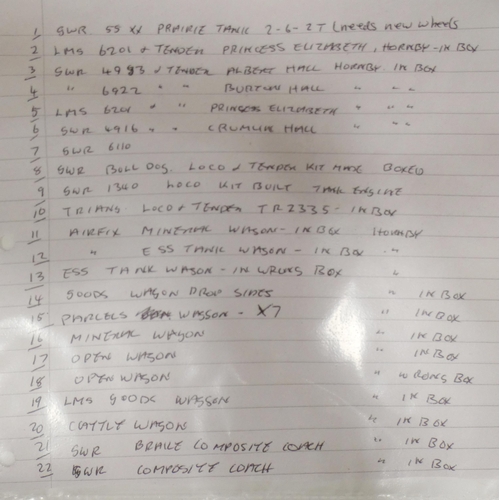 1 GWR 55XX PRAIRIE TANK 2-6-2T (needs new wheels
2 LMS 6201 & TENDER PRINCESS ELIZABETH, HORNBY-IN BOX
3 GWR 4983 & TENDER ALBERT HALL HORNBY IN BOX
4 " 6922 " " BURTON HALL " " "
5 LMS 6201 " " PRINCESS ELIZABETH " " "
6 GWR 4916 " " CRUMLIN HALL " " "
7 GWR 6110
8 GWR BULLDOG LOCO & TENDER KIT MADE BOXED
9 GWR 1340 LOCO KIT BUILT TANK ENGINE
10 TRIANG LOCO & TENDER TR2335- IN BOX
11 AIRFIX MINERAL WAGON- IN BOX HORNBY
12 " ESS TANK WAGON - IN BOX "
13 ESS TANK WAGON - IN WRONG BOX "
14 GOODS WAGON DROP SIDES " IN BOX
15 PARCELS WAGGON - X7 " IN BOX
16 MINERAL WAGON " IN BOX
17 OPEN WAGON " IN BOX
18 OPEN WAGON " WRONG BOX
19 LMS GOODS WAGGON " IN BOX
20 CATTLE WAGON " IN BOX
21 GWR BRAKE COMPOSITE COACH " IN BOX
22 GWR COMPOSITE COACH " IN BOX